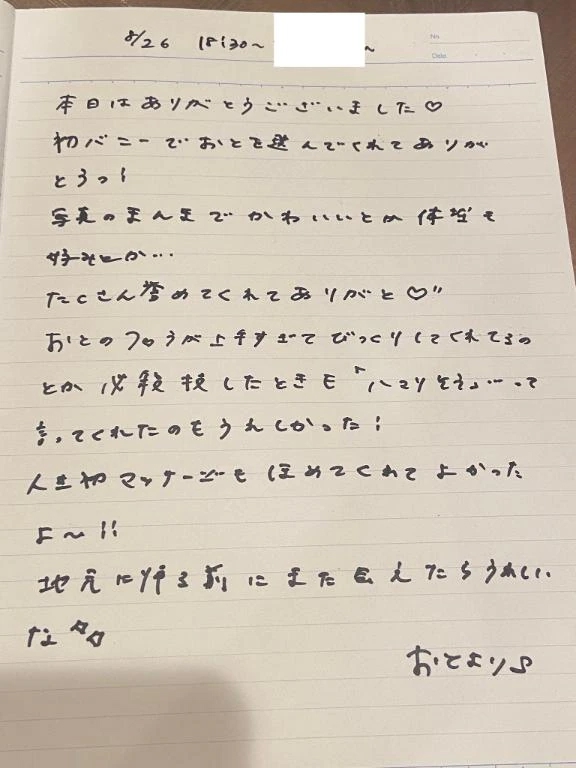 8/26 18:30〜 〜
No.
Date
本日はありがとうございました♡
初バニーでおとを選んでくれてありが
とうっ！
写真のまんまでかわいいとか体型も
好みとか…
たくさん誉めてくれてありがと♡"
おとのフロうが上手すぎてびっくりしてくれてるの
とか 必殺技したときも「ハマりそう…って
言ってくれたのもうれしかった！
人生初マッサージもほめてくれてよかった
よ〜!!
地元に帰る前にまた会えたらうれしい
な
おとより♪